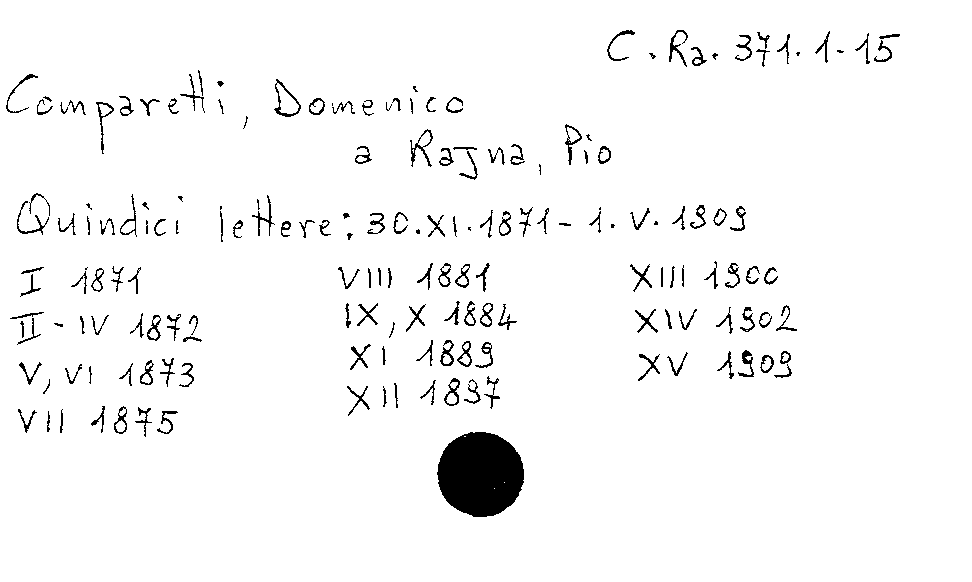 C. Ra. 371. 1-15
Comparetti, Domenico
a Rajna, Pio
Quindici lettere: 30.XI.1871 - 1.V.1909
I 1871
II - IV 1872
V, VI 1873
VII 1875
VIII 1881
IX, X 1884
XI 1889
XII 1897
XIII 1900
XIV 1902
XV 1909